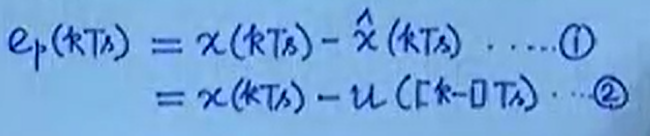 eₚ(kTs) = x(kTs) - x̂(kTs) ......①
= x(kTs) - u([k-1]Ts) ...②